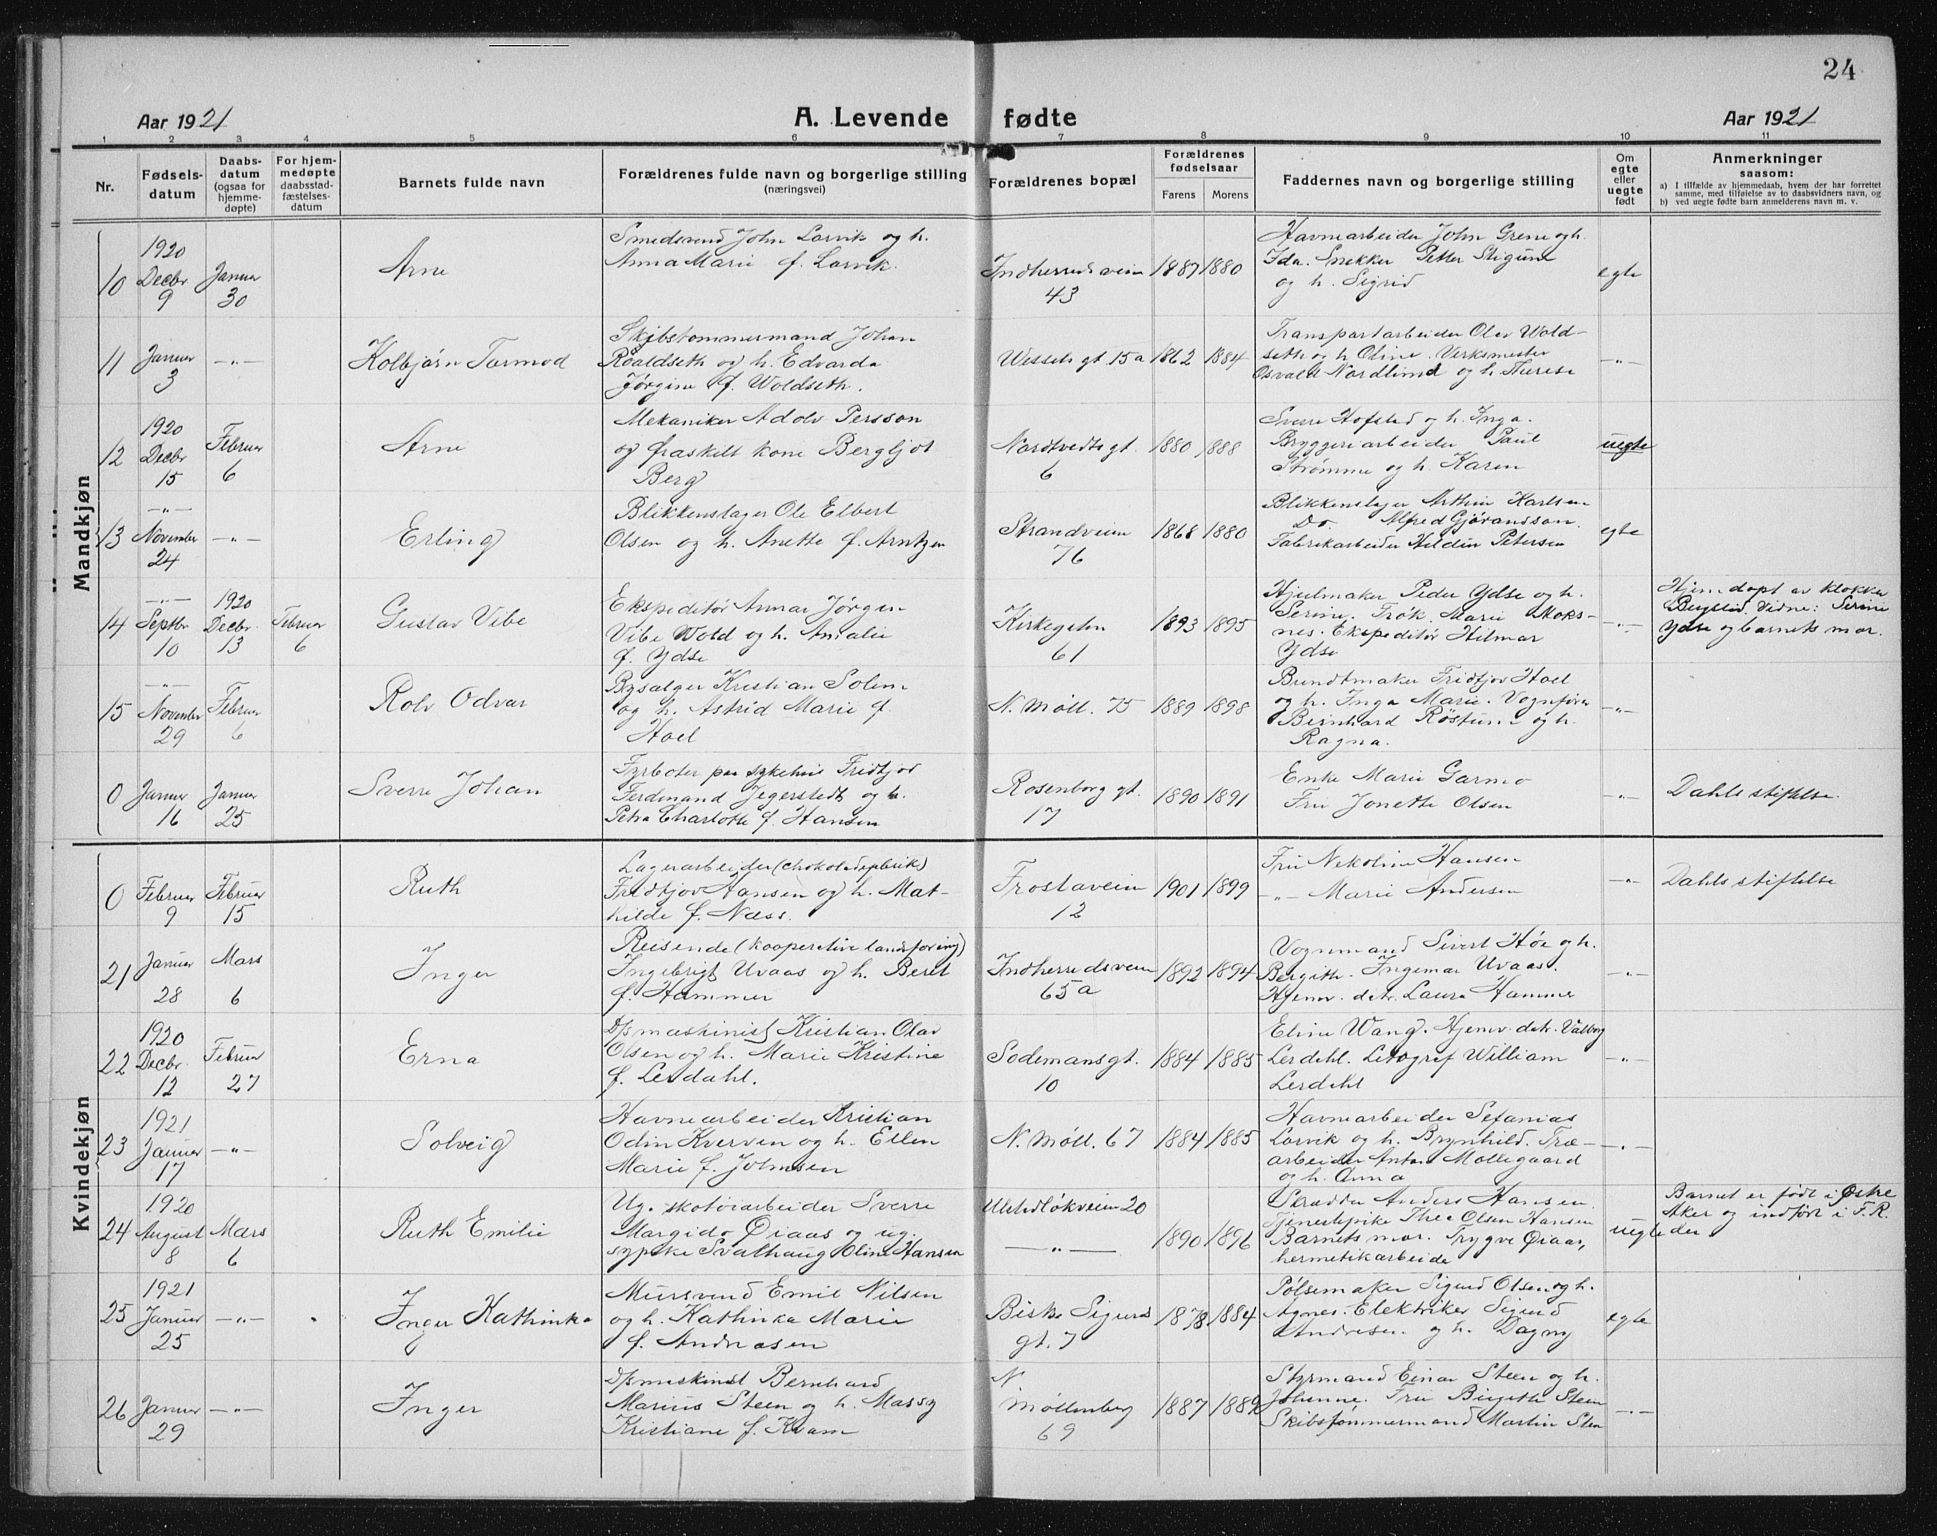 24
Aar 1921
A. Levende fødte
Aar 1921
1 2 3 4 5 6 7 8 9 10 11
Nr.
Fødsels-
datum
Daabs-
datum
(ogsaa for
hjemme-
døpte)
For hjem-
medøpte
daabsstad-
fæstelses-
datum
Barnets fulde navn
Forældrenes fulde navn og borgerlige stilling
(næringsvei)
Forældrenes bopæl
Forældrenes
fødselsaar
Farens Morens
Faddernes navn og borgerlige stilling
Om
egte
eller
uegte
født
Anmerkninger
saasom:
a) I tilfælde av hjemmedaab, hvem der har forrettet
samme, med tilføielse av to daabsvidners navn, og
b) ved uegte fødte barn anmelderens navn m. v.
Mandkjøn
10
1920
Decbr
9
Januar
30
Arne
Smedsvend John Lorvik og h.
Anna Marie f. Lorvik.
Indherredsveien
43
1887 1880
Havnearbeider John Grene og h.
Ida. Snekker Petter Stigune
og h. Sigrid
egte
11
Januar
3
-"-
Kolbjørn Tormod
Skibstømmermand Johan
Roaldseth og h. Edvarda
Jørgine f. Woldseth.
Wessels gt 15a
1862 1884
Transportarbeider Olav Wold-
seth og h Oline. Verksmester
Osvald Nordlund og h. Therese
-"-
12
1920
Decbr
15
Februar
6
Arne
Mekaniker Adolv Persson
og fraskilt kone Bergljot
Berg
Nordtvedts gt.
6
1880 1888
Sverre Hofstad og h. Inga.
Bryggeriarbeider Paul
Strømme og h. Karen
uegte
13
-"-
November
24
-"-
Erling
Blikkenslager Ole Elbert
Olsen og h. Anette f. Arntzen
Strandveien
76
1868 1880
Blikkenslager Arthur Karlsen
Do. Alfred Gjøransson.
Fabrikarbeider Hildur Petersen
egte
14
-"-
Septbr
10
1920
Decbr.
13
Februar
6
Gustav Vibe
Ekspeditør Annar Jørgen
Vibe Wold og h. Amalie
f. Ydse
Kirkegaten
61
1893 1895
Hjulmaker Peder Ydse og h.
Serine. Frøk. Marie Moks-
nes. Ekspeditør Hilmar
Ydse
-"-
Hjemdøpt av klokker
Vidne: Serine
Ydse og barnets mor.
15
-"-
November
29
Februar
6
Rolv Odvar
Bysælger Kristian Solem
og h. Astrid Marie f.
Hoel
N. Møll. 75
1889 1898
Bundtmaker Fridtjov Hoel
og h. Inga Marie. Vognfører
Bernhard Røstum og h.
Ragna.
-"-
0
Januar
16
Januar
25
Sverre Johan
Fyrbøter paa sykehus Fridtjov
Ferdinand Jegerstedt og h.
Petra Charlotte f. Hansen
Rosenborg gt.
17
1890 1891
Enke Marie Garmo
Fru Jonette Olsen
-"-
Dahls stiftelse.
Kvindekjøn
0
Februar
9
Februar
15
Ruth
Lagerarbeider (chokoladefabrik)
Fridtjov Hansen og h. Mat-
hilde f. Næss.
Frostaveien
12
1901 1899
Fru Nekoline Hansen
-"- Marie Andersen
-"-
Dahls stiftelse
21
Januar
28
Mars
6
Inger
Reisende (kooperative landsforening)
Ingebrigt Uvaas og h. Beret
f. Hammer
Indherredsveien
65a
1892 1894
Vognmand Sivert Høe og h.
Bergith. Ingemar Uvaas.
Hjemv. dtr. Laura Hammer
-"-
22
1920
Decbr.
12
Februar
27
Erna
D/s maskinist Kristian Olav
Olsen og h. Marie Kristine
f. Lerdahl.
Sodemansgt.
10
1884 1885
Eline Wang. Hjemv. dtr. Valborg
Lerdahl. Litograf William
Lerdahl
-"-
23
1921
Januar
17
-"-
Solveig
Havnearbeider Kristian
Odin Kverven og h. Ellen
Marie f. Johnsen
N. Møll. 67
1884 1885
Havnearbeider Sefanias
Lorvik og h. Brynhild. Træ-
arbeider Anton Mollegaard
og h. Anna
-"-
24
1920
August
8
Mars
6
Ruth Emilie
Ug. skotøiarbeider Sverre
Margido Øiaas og ug.
sypike Svalhaug Oline Hansen
Ulstadløkveien 20
-"-
1890 1896
Skrædder Anders Hansen.
Tjenestepike Thea Olsen Hansen
Barnets mor. Trygve Øiaas,
hermetikarbeider
uegte
Barnet er født i Østre
Aker og indført i F.R.
der
25
1921
Januar
25
-"-
Inger Kathinka
Mursvend Emil Nilsen
og h. Kathinka Marie
f. Andreasen
Bisk. Sigurds
gt. 7
1878 1884
Pølsemaker Sigurd Olsen og h.
Agnes. Elektriker Sigurd
Andresen og h. Dagny
egte
26
Januar
29
-"-
Inger
D/s maskinist Bernhard
Marius Steen og h. Massy
Kristiane f. Kvam
N
Møllenberg
69
1887 1889
Styrmand Einar Steen og h.
Johanne. Fru Birgith Steen
Skibstømmermand Martin Sten
-"-